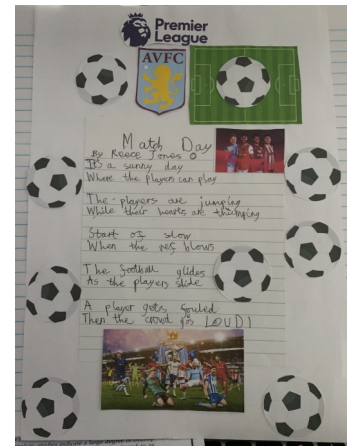 Premier
League
AVFC
Match Day
By Reece Jones
It's a sunny day
Where the players can play
The players are jumping
While their hearts are thumping
Start of slow
When the ref blows
The football glides
As the players slide
A player gets fouled
Then the crowd gos LOUD!